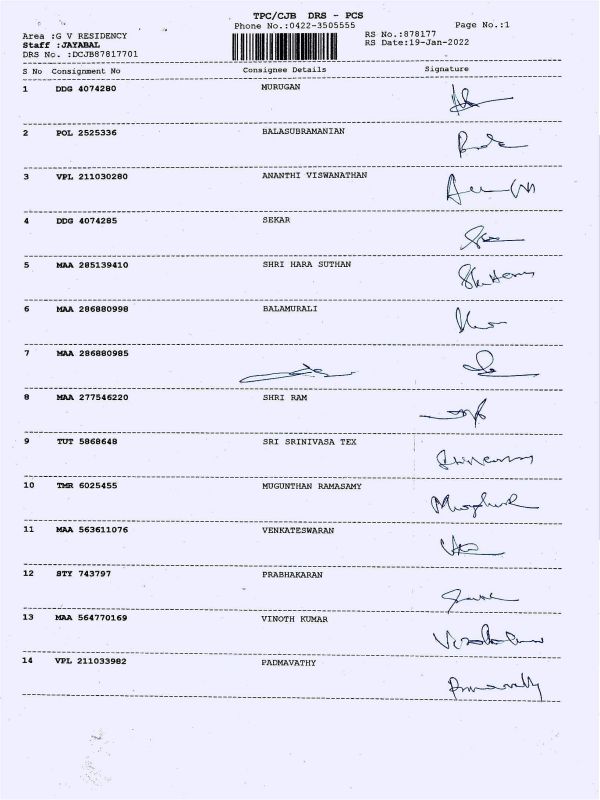 TPC/CJB DRS - PCS
Phone No.:0422-3505555 Page No.:1
Area :G V RESIDENCY RS No.:878177
Staff :JAYABAL RS Date:19-Jan-2022
DRS No. :DCJB87817701
S No Consignment No Consignee Details Signature
1 DDG 4074280 MURUGAN
2 POL 2525336 BALASUBRAMANIAN
3 VPL 211030280 ANANTHI VISWANATHAN
4 DDG 4074285 SEKAR
5 MAA 285139410 SHRI HARA SUTHAN
6 MAA 286880998 BALAMURALI
7 MAA 286880985
8 MAA 277546220 SHRI RAM
9 TUT 5868648 SRI SRINIVASA TEX
10 TMR 6025455 MUGUNTHAN RAMASAMY
11 MAA 563611076 VENKATESWARAN
12 STY 743797 PRABHAKARAN
13 MAA 564770169 VINOTH KUMAR
14 VPL 211033982 PADMAVATHY